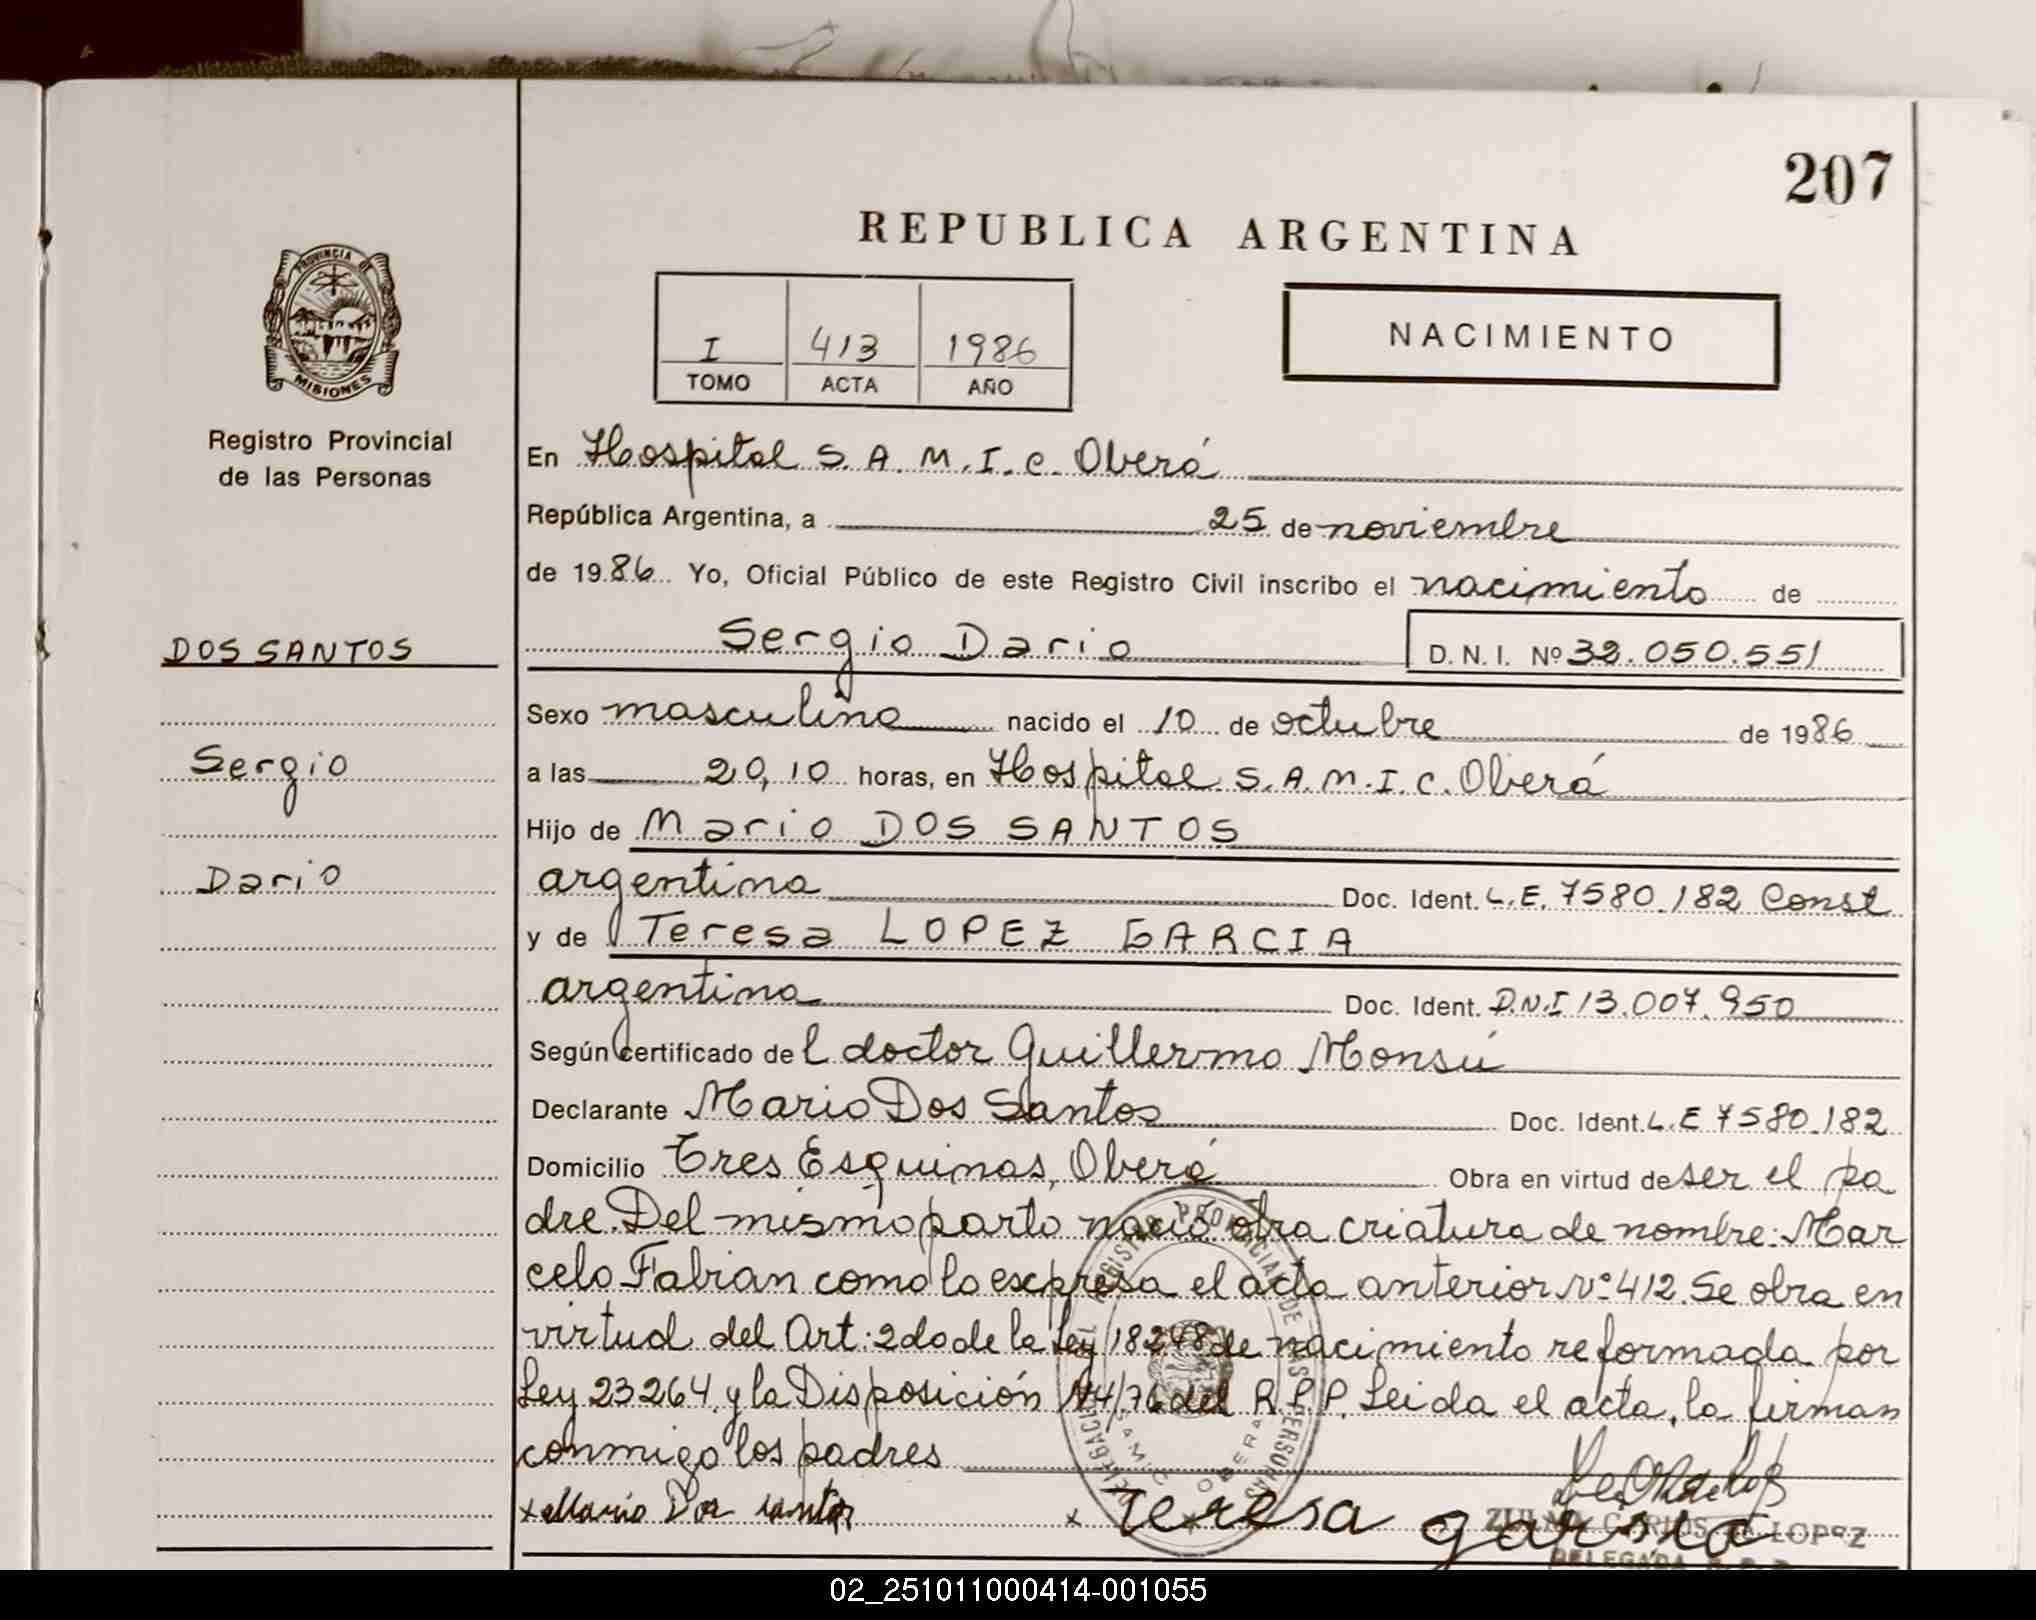 207
REPUBLICA ARGENTINA
PROVINCIA DE
MISIONES
Registro Provincial
de las Personas
I 413 1986
TOMO ACTA AÑO
NACIMIENTO
En Hospital S.A.M.I.C. Oberá
República Argentina, a 25 de noviembre
de 1986 Yo, Oficial Público de este Registro Civil inscribo el nacimiento de
DOS SANTOS
Sergio Dario D.N.I. Nº 32.050.551
Sexo masculino nacido el 10 de octubre de 1986
Sergio
a las 20,10 horas, en Hospital S.A.M.I.C. Oberá
Hijo de Mario DOS SANTOS
Dario
argentina Doc. Ident. L.E. 7580.182 Const
y de Teresa LOPEZ GARCIA
argentina Doc. Ident. D.N.I 13.007.950
Según certificado del doctor Guillermo Monsú
Declarante Mario Dos Santos Doc. Ident. L.E 7580.182
Domicilio Tres Esquinas, Oberá Obra en virtud de ser el pa
dre. Del mismo parto nació otra criatura de nombre: Mar
celo Fabian como lo expresa el acta anterior Nº 412. Se obra en
virtud del Art: 2do de la Ley 18248 de nacimiento reformada por
Ley 23264 y la Disposición Nº4/76 del R.P.P. Leida el acta, la firman
conmigo los padres
x Mario Dos santos x Teresa garsia
DELEGACION REGISTRO PROVINCIAL DE LAS PERSONAS
SAMIC OBERA
LOPEZ
DELEGADA R.P.P.
02_251011000414-001055